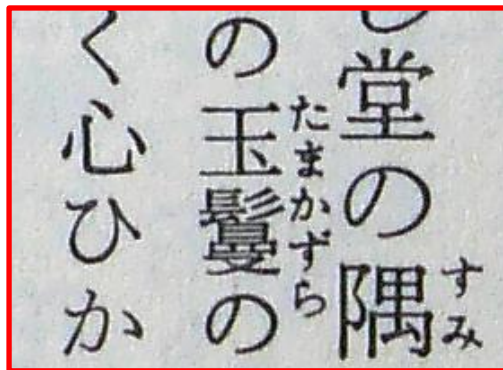 し堂の隅すみ
の玉鬘たまかずらの
く心ひか